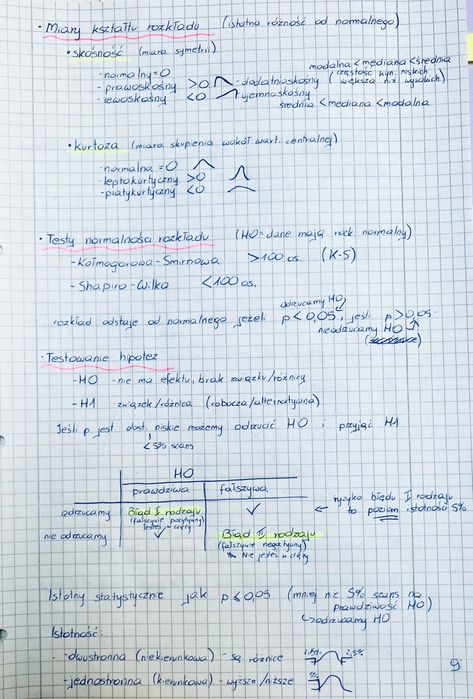 • Miary kształtu rozkładu (istotna różność od normalnego)
• skośność (miara symetrii)
- normalny = 0
- prawoskośny >0 - dodatnioskośny
- lewoskośny <0 - ujemnoskośny
modalna < mediana < średnia
(częstość wyn. niskich większa niż wysokich)
średnia < mediana < modalna
• kurtoza (miara skupienia wokół wart. centralnej)
- normalna = 0
- leptokurtyczny >0
- platykurtyczny <0
• Testy normalności rozkładu (H0 = dane mają rozk. normalny)
- Kołmogorowa-Smirnowa >100 os. (K-S)
- Shapiro-Wilka <100 os.
odrzucamy H0
rozkład odstaje od normalnego jeżeli p < 0,05, jeśli p > 0,05
nieodrzucamy H0
• Testowanie hipotez
- H0 - nie ma efektu, brak związku/różnicy
- H1 związek/różnica (robocza/alternatywna)
Jeśli p jest dost. niskie możemy odrzucić H0 i przyjąć H1
<5% szans
H0
prawdziwa fałszywa
odrzucamy Błąd I rodzaju ✓
(fałszywie pozytywny)
Jesteś w ciąży
← ryzyko błędu I rodzaju
to poziom istotności 5%
nie odrzucamy ✓ Błąd II rodzaju
(fałszywie negatywny)
Nie jesteś w ciąży
Istotny statystycznie jak p ≤ 0,05 (mniej niż 5% szans na
prawdziwość H0)
↳ odrzucamy H0
Istotność:
- dwustronna (niekierunkowa) - są różnice 2,5% 2,5%
- jednostronna (kierunkowa) - wyższe/niższe 5%
9